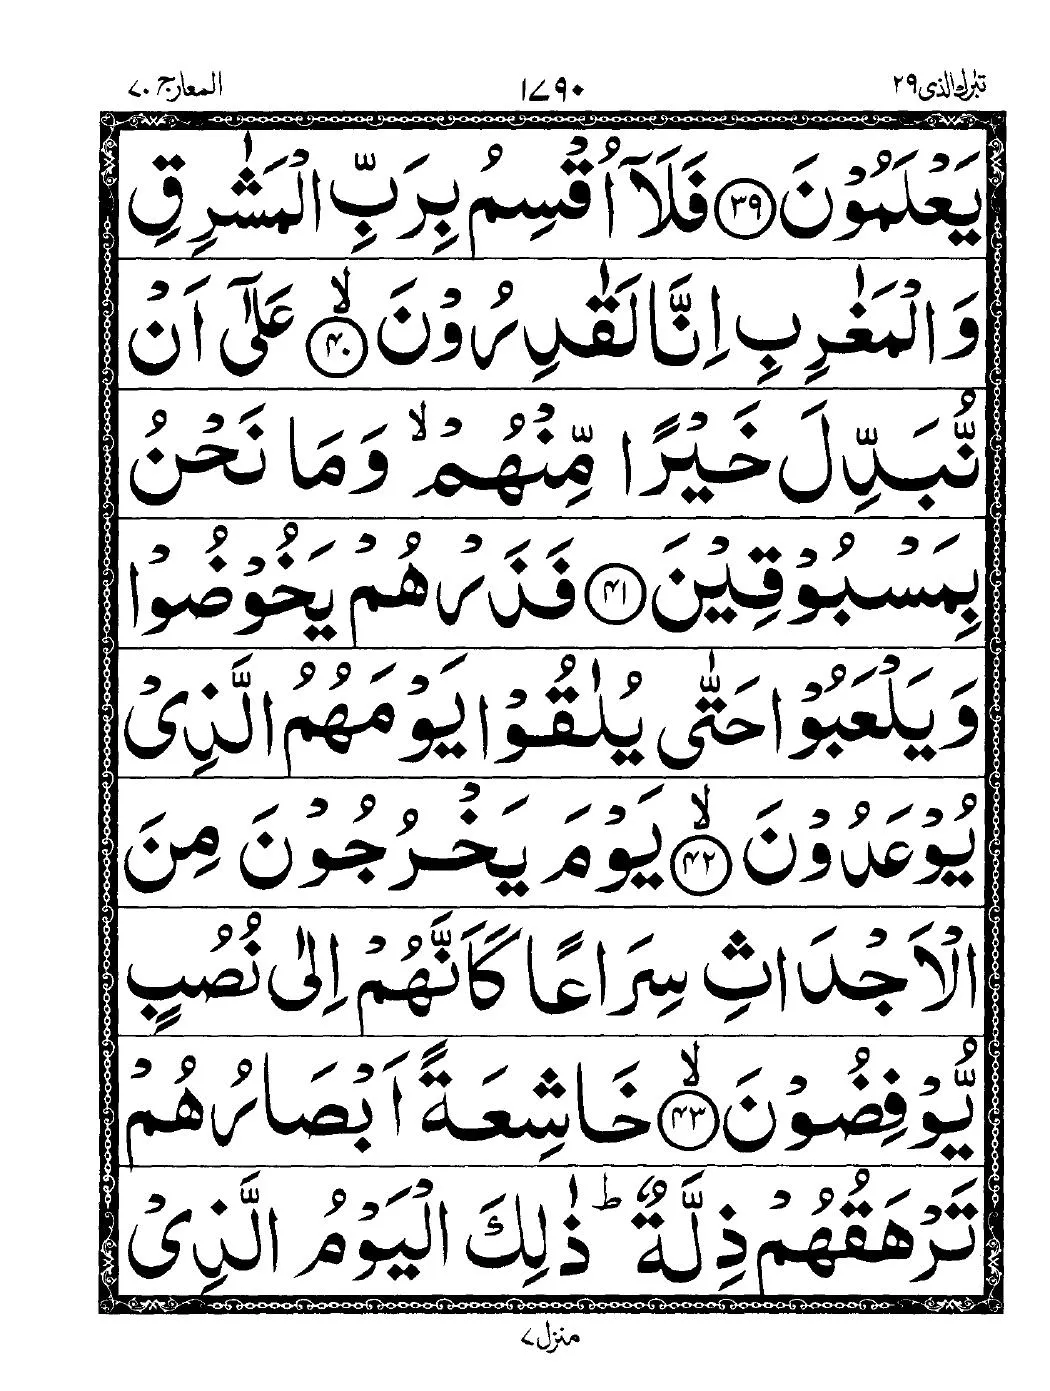 تبٰرك الذی ۲۹ ۱۷۹۰ المعارج ۷۰
يَعْلَمُوْنَ ﴿۳۹﴾ فَلَاۤ اُقْسِمُ بِرَبِّ الْمَشٰرِقِ
وَ الْمَغٰرِبِ اِنَّا لَقٰدِرُوْنَ ﴿۴۰﴾ۙ عَلٰۤى اَنْ
نُّبَدِّلَ خَيْرًا مِّنْهُمْ ۙ وَ مَا نَحْنُ
بِمَسْبُوْقِيْنَ ﴿۴۱﴾ فَذَرْهُمْ يَخُوْضُوْا
وَ يَلْعَبُوْا حَتّٰى يُلٰقُوْا يَوْمَهُمُ الَّذِىْ
يُوْعَدُوْنَ ﴿۴۲﴾ۙ يَوْمَ يَخْرُجُوْنَ مِنَ
الْاَجْدَاثِ سِرَاعًا كَاَنَّهُمْ اِلٰى نُصُبٍ
يُّوْفِضُوْنَ ﴿۴۳﴾ۙ خَاشِعَةً اَبْصَارُهُمْ
تَرْهَقُهُمْ ذِلَّةٌ ؕ ذٰلِكَ الْيَوْمُ الَّذِىْ
منزل ۷